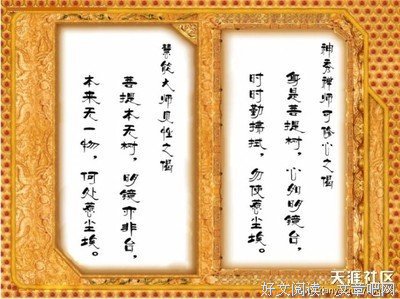 神秀禅师可修心之偈
身是菩提树，心如明镜台，
时时勤拂拭，勿使惹尘埃。
慧能大师见性之偈
菩提本无树，明镜亦非台，
本来无一物，何处惹尘埃。
天涯社区
好文阅读 文章吧网